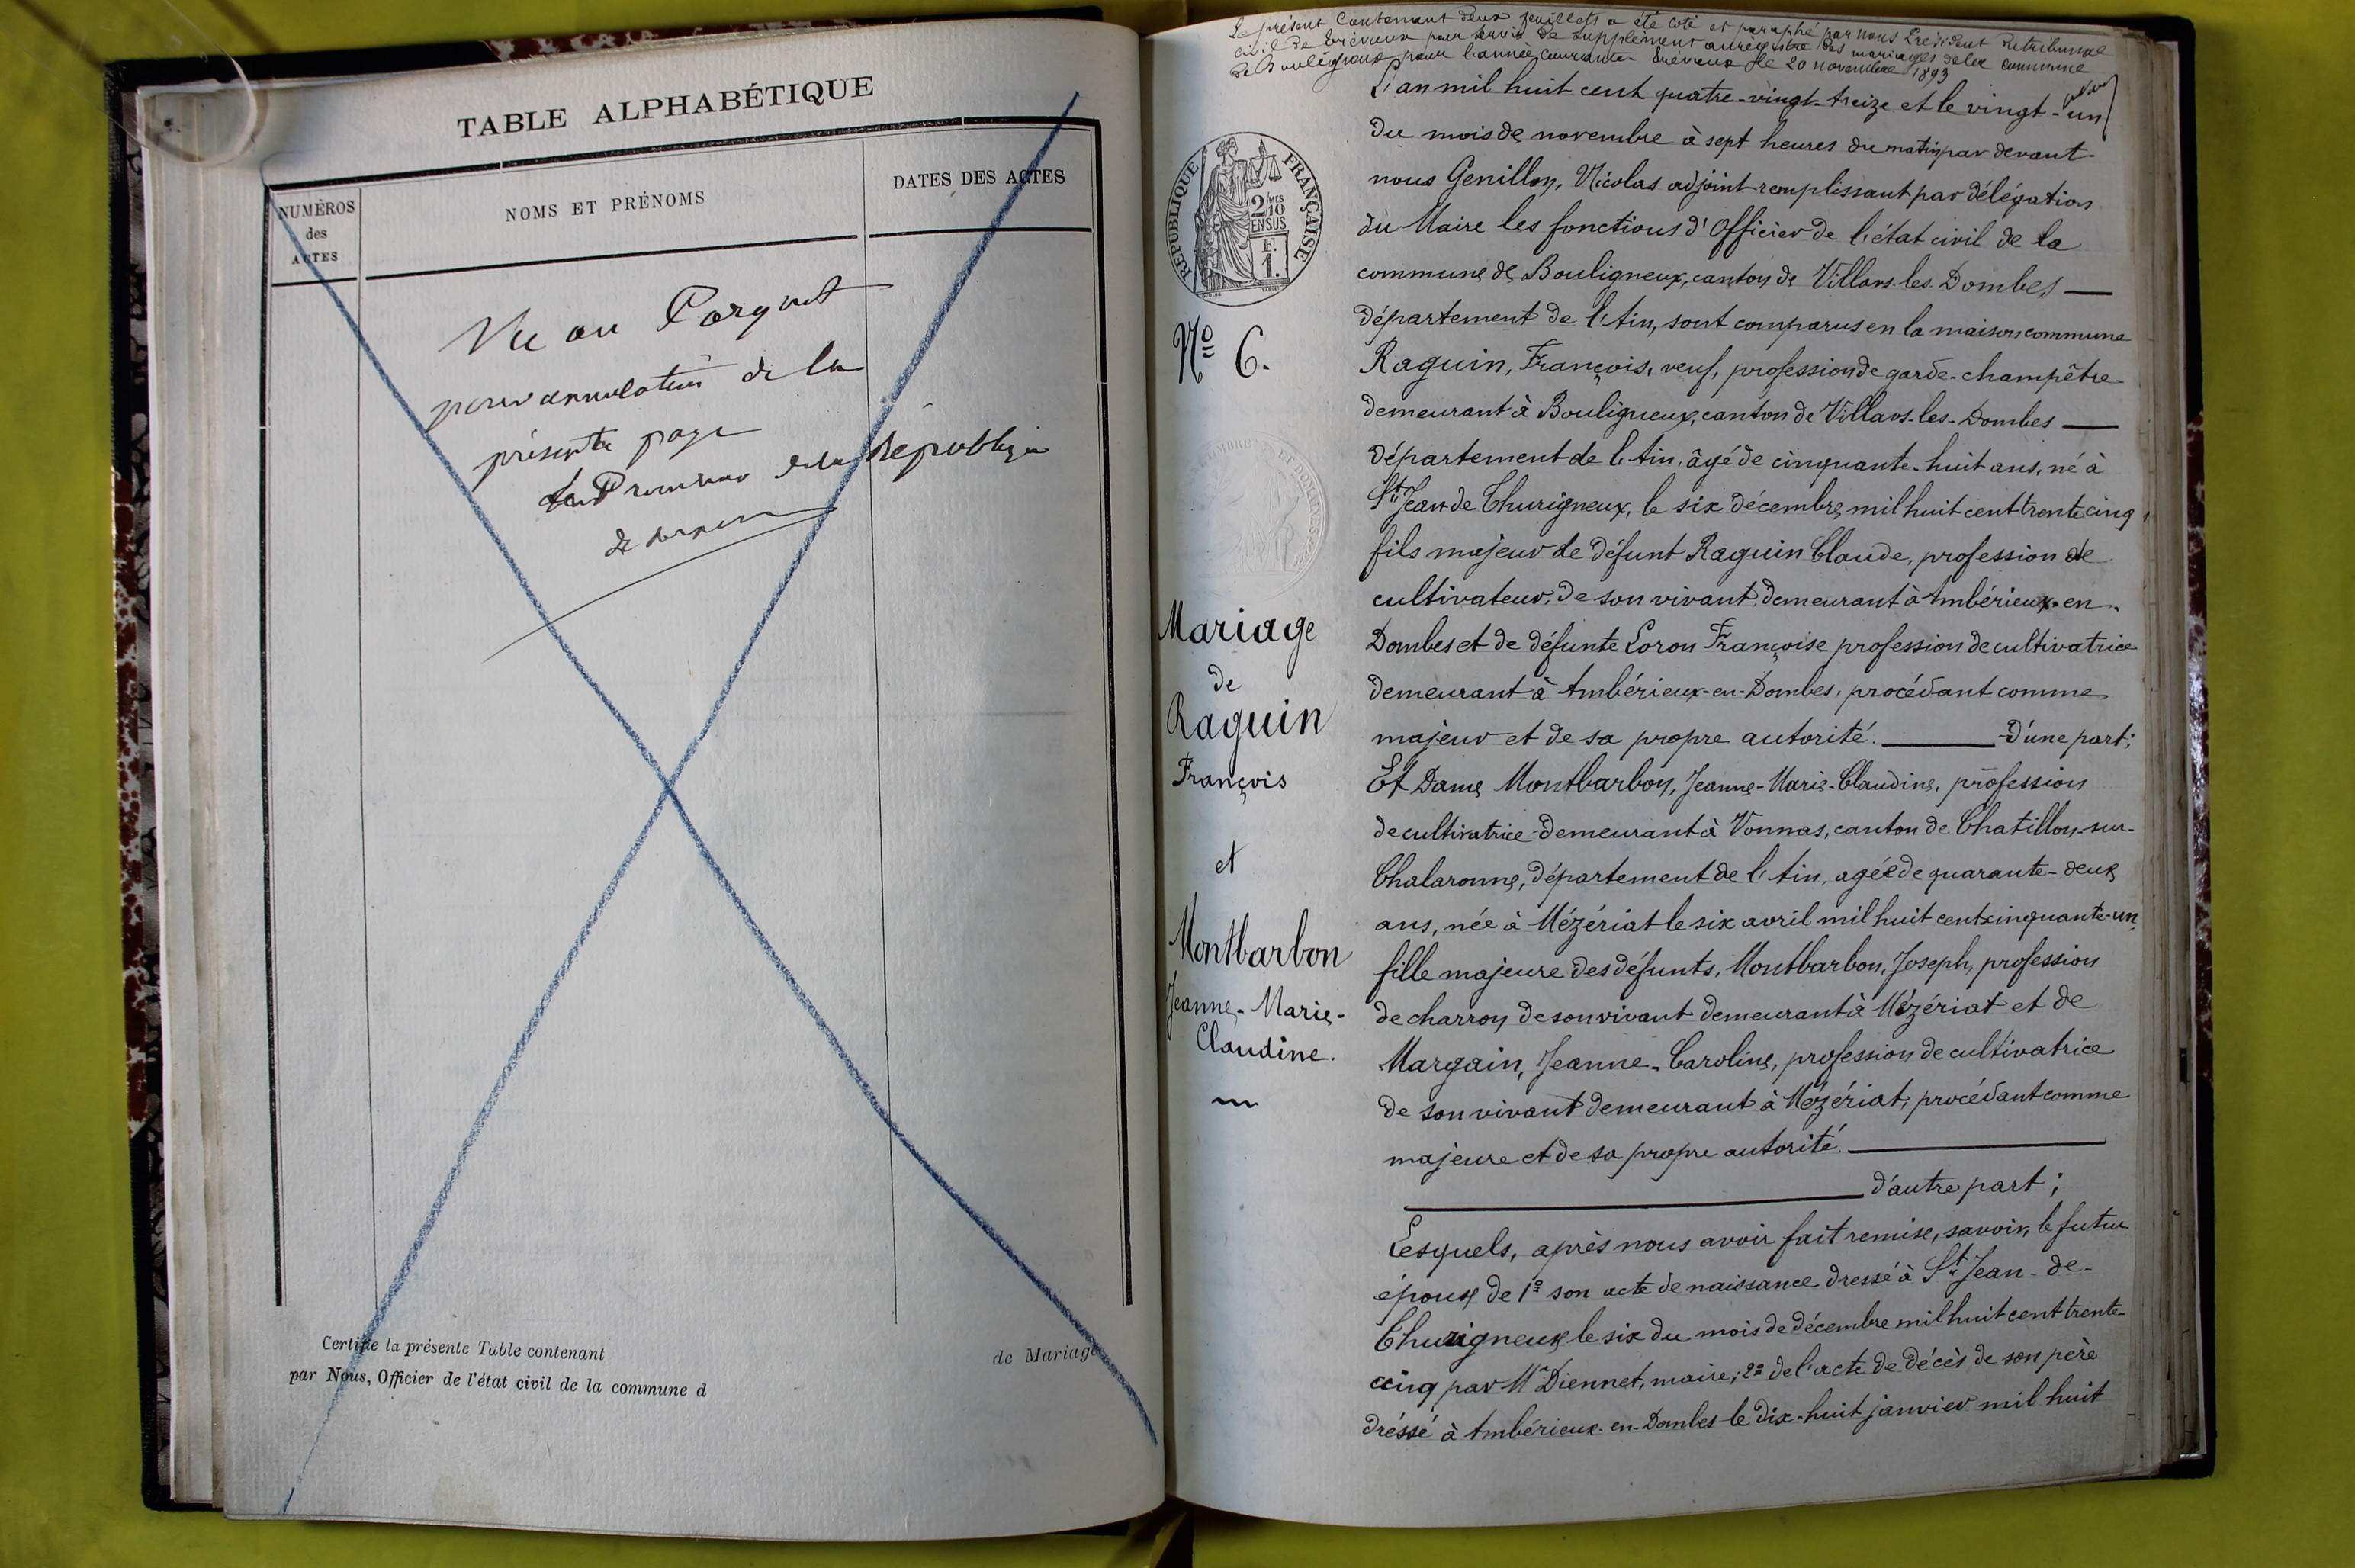 TABLE ALPHABÉTIQUE
NUMÉROS
des
ACTES
NOMS ET PRÉNOMS
DATES DES ACTES
Vu au Parquet
pour annulation de la
présente page
Le Procureur de la République
Certifié la présente Table contenant
de Mariage
par Nous, Officier de l'état civil de la commune d
Le présent Contenant deux feuillets a été coté et paraphé par nous Président du tribunal
civil de Trévoux pour servir de supplément au registre des mariages de la commune
de Bouligneux pour l'année courante. Trévoux le 20 novembre 1893
L'an mil huit cent quatre-vingt-treize et le vingt-un
du mois de novembre à sept heures du matin par devant
nous Genillon, Nicolas adjoint remplissant par délégation
du Maire les fonctions d'Officier de l'état civil de la
commune de Bouligneux, canton de Villars-les-Dombes
département de l'Ain, sont comparus en la maison commune
Raguin, François, veuf, profession de garde-champêtre
demeurant à Bouligneux, canton de Villars-les-Dombes
département de l'Ain, âgé de cinquante-huit ans, né à
St Jean de Thurigneux, le six décembre mil huit cent trente cinq
fils majeur de défunt Raguin Claude, profession de
cultivateur, de son vivant demeurant à Ambérieux-en-
Dombes et de défunte Loron Françoise profession de cultivatrice
demeurant à Ambérieux-en-Dombes, procédant comme
majeur et de sa propre autorité. D'une part;
Et Dame Montbarbon, Jeanne-Marie-Claudine, profession
de cultivatrice demeurant à Vonnas, canton de Chatillon-sur-
Chalaronne, département de l'Ain, agée de quarante-deux
ans, née à Mézériat le six avril mil huit cent cinquante-un,
fille majeure des défunts, Montbarbon, Joseph, profession
de charron de son vivant demeurant à Mézériat et de
Margain, Jeanne-Caroline, profession de cultivatrice
de son vivant demeurant à Mézériat, procédant comme
majeure et de sa propre autorité.
d'autre part;
Lesquels, après nous avoir fait remise, savoir, le futur
époux de 1º son acte de naissance dressé à St Jean-de-
Thurigneux le six du mois de décembre mil huit cent trente-
cinq par Mr Diennet, maire; 2º de l'acte de décès de son père
dréssé à Ambérieux-en-Dombes le dix-huit janvier mil huit
RÉPUBLIQUE FRANÇAISE
2/10
EN SUS
F.
1.
Nº 6.
Mariage
de
Raguin
François
et
Montbarbon
Jeanne-Marie-
Claudine.